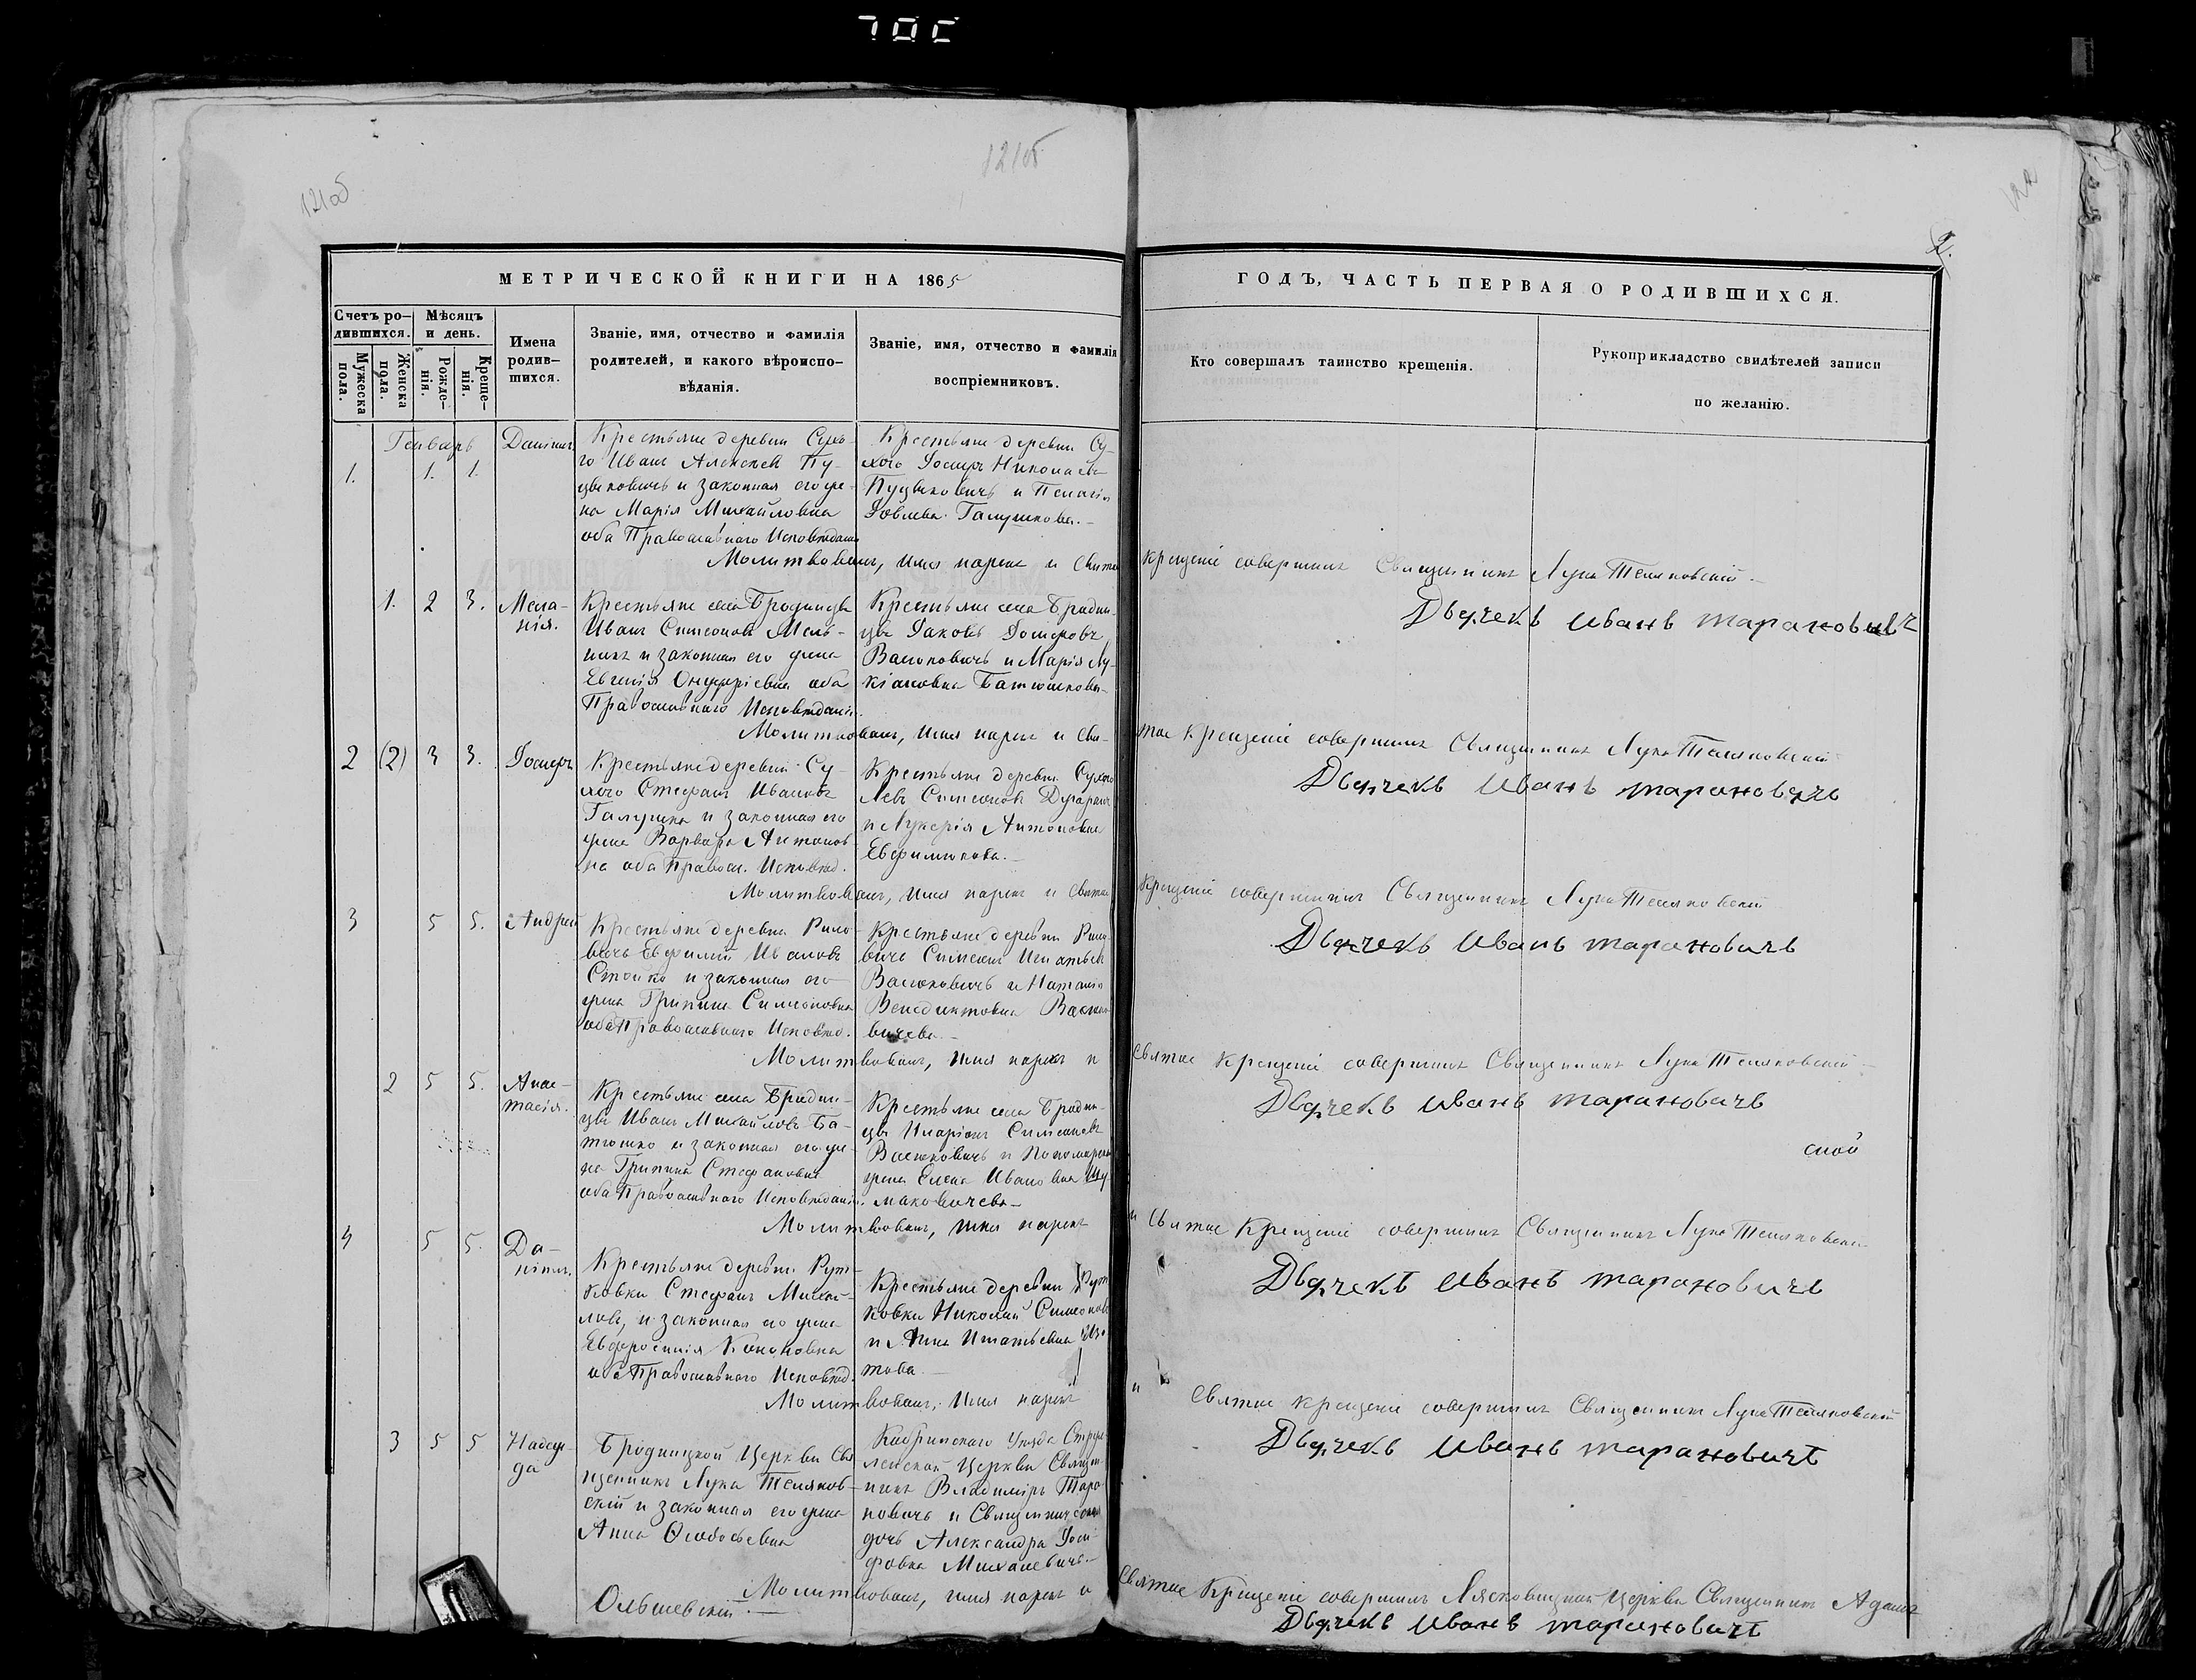 121об
121об
122
2.
МЕТРИЧЕСКОЙ КНИГИ НА 1865
ГОДЪ, ЧАСТЬ ПЕРВАЯ О РОДИВШИХСЯ.
Счетъ ро-
дившихся.
Мужеска пола.
Женска пола.
Мѣсяцъ
и день.
Рожде-
нія.
Креще-
нія.
Имена
родив-
шихся.
Званіе, имя, отчество и фамилія
родителей, и какого вѣроиспо-
вѣданія.
Званіе, имя, отчество и фамилія
воспріемниковъ.
Кто совершалъ таинство крещенія.
Рукоприкладство свидѣтелей записи
по желанію.
Генварь
1. 1. 1.
Даніилъ
Крестьяне деревни Сухо-
го Иванъ Алексѣевъ Пу-
цыковичь и законная его же-
на Марія Михайловна
оба Православнаго Исповѣданія
Крестьяне деревни Су-
хого Іосифъ Николаевъ
Пуцыковичь и Пелагія
Іовлева Галушкова.
Молитвовалъ, имя нарекъ и Святое Крещеніе совершилъ Священникъ Лука Теляковскій
Дьячекъ Иванъ Тарановичъ
1. 2 3.
Мела-
нія.
Крестьяне села Бродницы
Иванъ Симеоновъ Мель-
никъ и законная его жена
Евгенія Онуфріевна оба
Православнаго Исповѣданія.
Крестьяне села Бродни-
цы Іаковъ Іосифовъ
Васюковичь и Марія Лу-
кіановна Батюшкова
Молитвовалъ, имя нарекъ и Свя-
тое Крещеніе совершилъ Священникъ Лука Теляковскій
Дьячекъ Иванъ Тарановичъ
2 (2) 3 3.
Іосифъ
Крестьяне деревни Су-
хого Стефанъ Ивановъ
Галушка и законная его
жена Варвара Антонов-
на оба Правосл. Исповѣд.
Крестьяне деревни Сухого
Левъ Симеоновъ
и Лукерія Антоновна
Евфимюкова.
Молитвовалъ, имя нарекъ и Святое Крещеніе совершилъ Священникъ Лука Теляковскій
Дьячекъ Иванъ Тарановичъ
3 5 5.
Андрей
Крестьяне деревни Рило-
вичь Евфимій Ивановъ
Стойко и законная его
жена Грипина Симеоновна
оба Православнаго Исповѣд.
Крестьяне деревни Рило-
вичь Симеонъ Игнатьевъ
Васюковичь и Наталія
Венедиктовна Васюко-
вичева.
Молитвовалъ, имя нарекъ и
Святое Крещеніе совершилъ Священникъ Лука Теляковскій
Дьячекъ Иванъ Тарановичъ
2 5 5.
Анас-
тасія.
Крестьяне села Бродни-
цы Иванъ Михайловъ Ба-
тюшко и законная его же-
на Грипина Стефановна
оба Православнаго Исповѣданія.
Крестьяне села Бродни-
цы Иларіонъ Симеоновъ
Васюковичь и Пономарская
жена Елена Ивановна Шу-
маковичева
Молитвовалъ, имя нарекъ
и Святое Крещеніе совершилъ Священникъ Лука Теляковскій
Дьячекъ Иванъ Тарановичъ
4 5 5.
Да-
ніилъ.
Крестьяне деревни Рут-
ковки Стефанъ Михай-
ловъ, и законная его жена
Евфросинія Кононовна
оба Православнаго Исповѣд.
Крестьяне деревни Рут-
ковки Николай Симеоновъ
и Анна Игнатьевна
Молитвовалъ, имя нарекъ
и Святое Крещеніе совершилъ Священникъ Лука Теляковскій
Дьячекъ Иванъ Тарановичъ
3 5 5
Надеж-
да
Бродницкой Церкви Свя-
щенникъ Лука Теляков-
скій и законная его жена
Анна Ѳеодосьевна
Кобринскаго Уѣзда
Церкви Священ-
никъ Владиміръ Тара-
новичь и Священническая
дочь Александра Іоси-
фовна Михалевичь.
Молитвовалъ, имя нарекъ и
Святое Крещеніе совершилъ Лясковицкой Церкви Священникъ Адамъ
Ольшевскій.
Дьячекъ Иванъ Тарановичъ